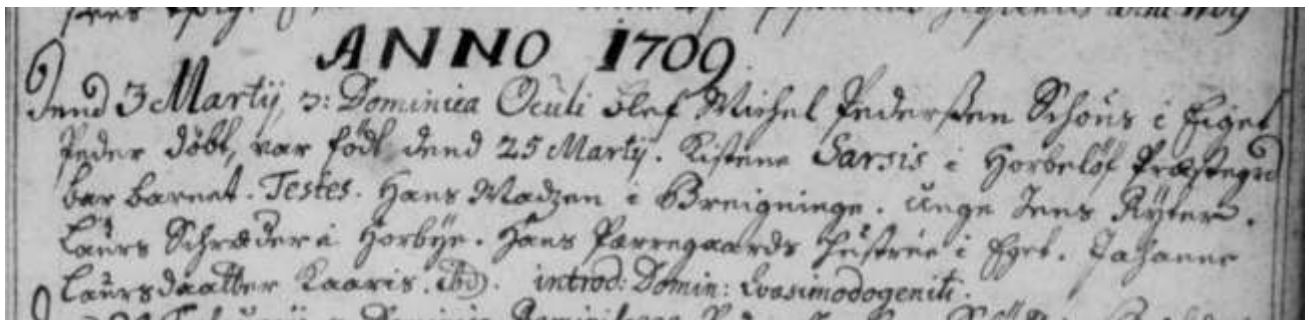 ANNO 1709
Dend 3 Martij, ɔ: Dominica Oculi blef Michel Pedersøn Schous i Eiget
Peder døbt, var född dend 25 Martij. Kistene Sarsis i Horbeløf Præstegrd
bar barnet. Testes. Hans Madzen i Breigninge. Unge Jens Ryter.
Laurs Schræder i Horbye. Hans Parregaards Hustrue i Eget. Johanne
Laursdaatter Kaaris. ibd. introd: Domin: Qvasimodogeniti.